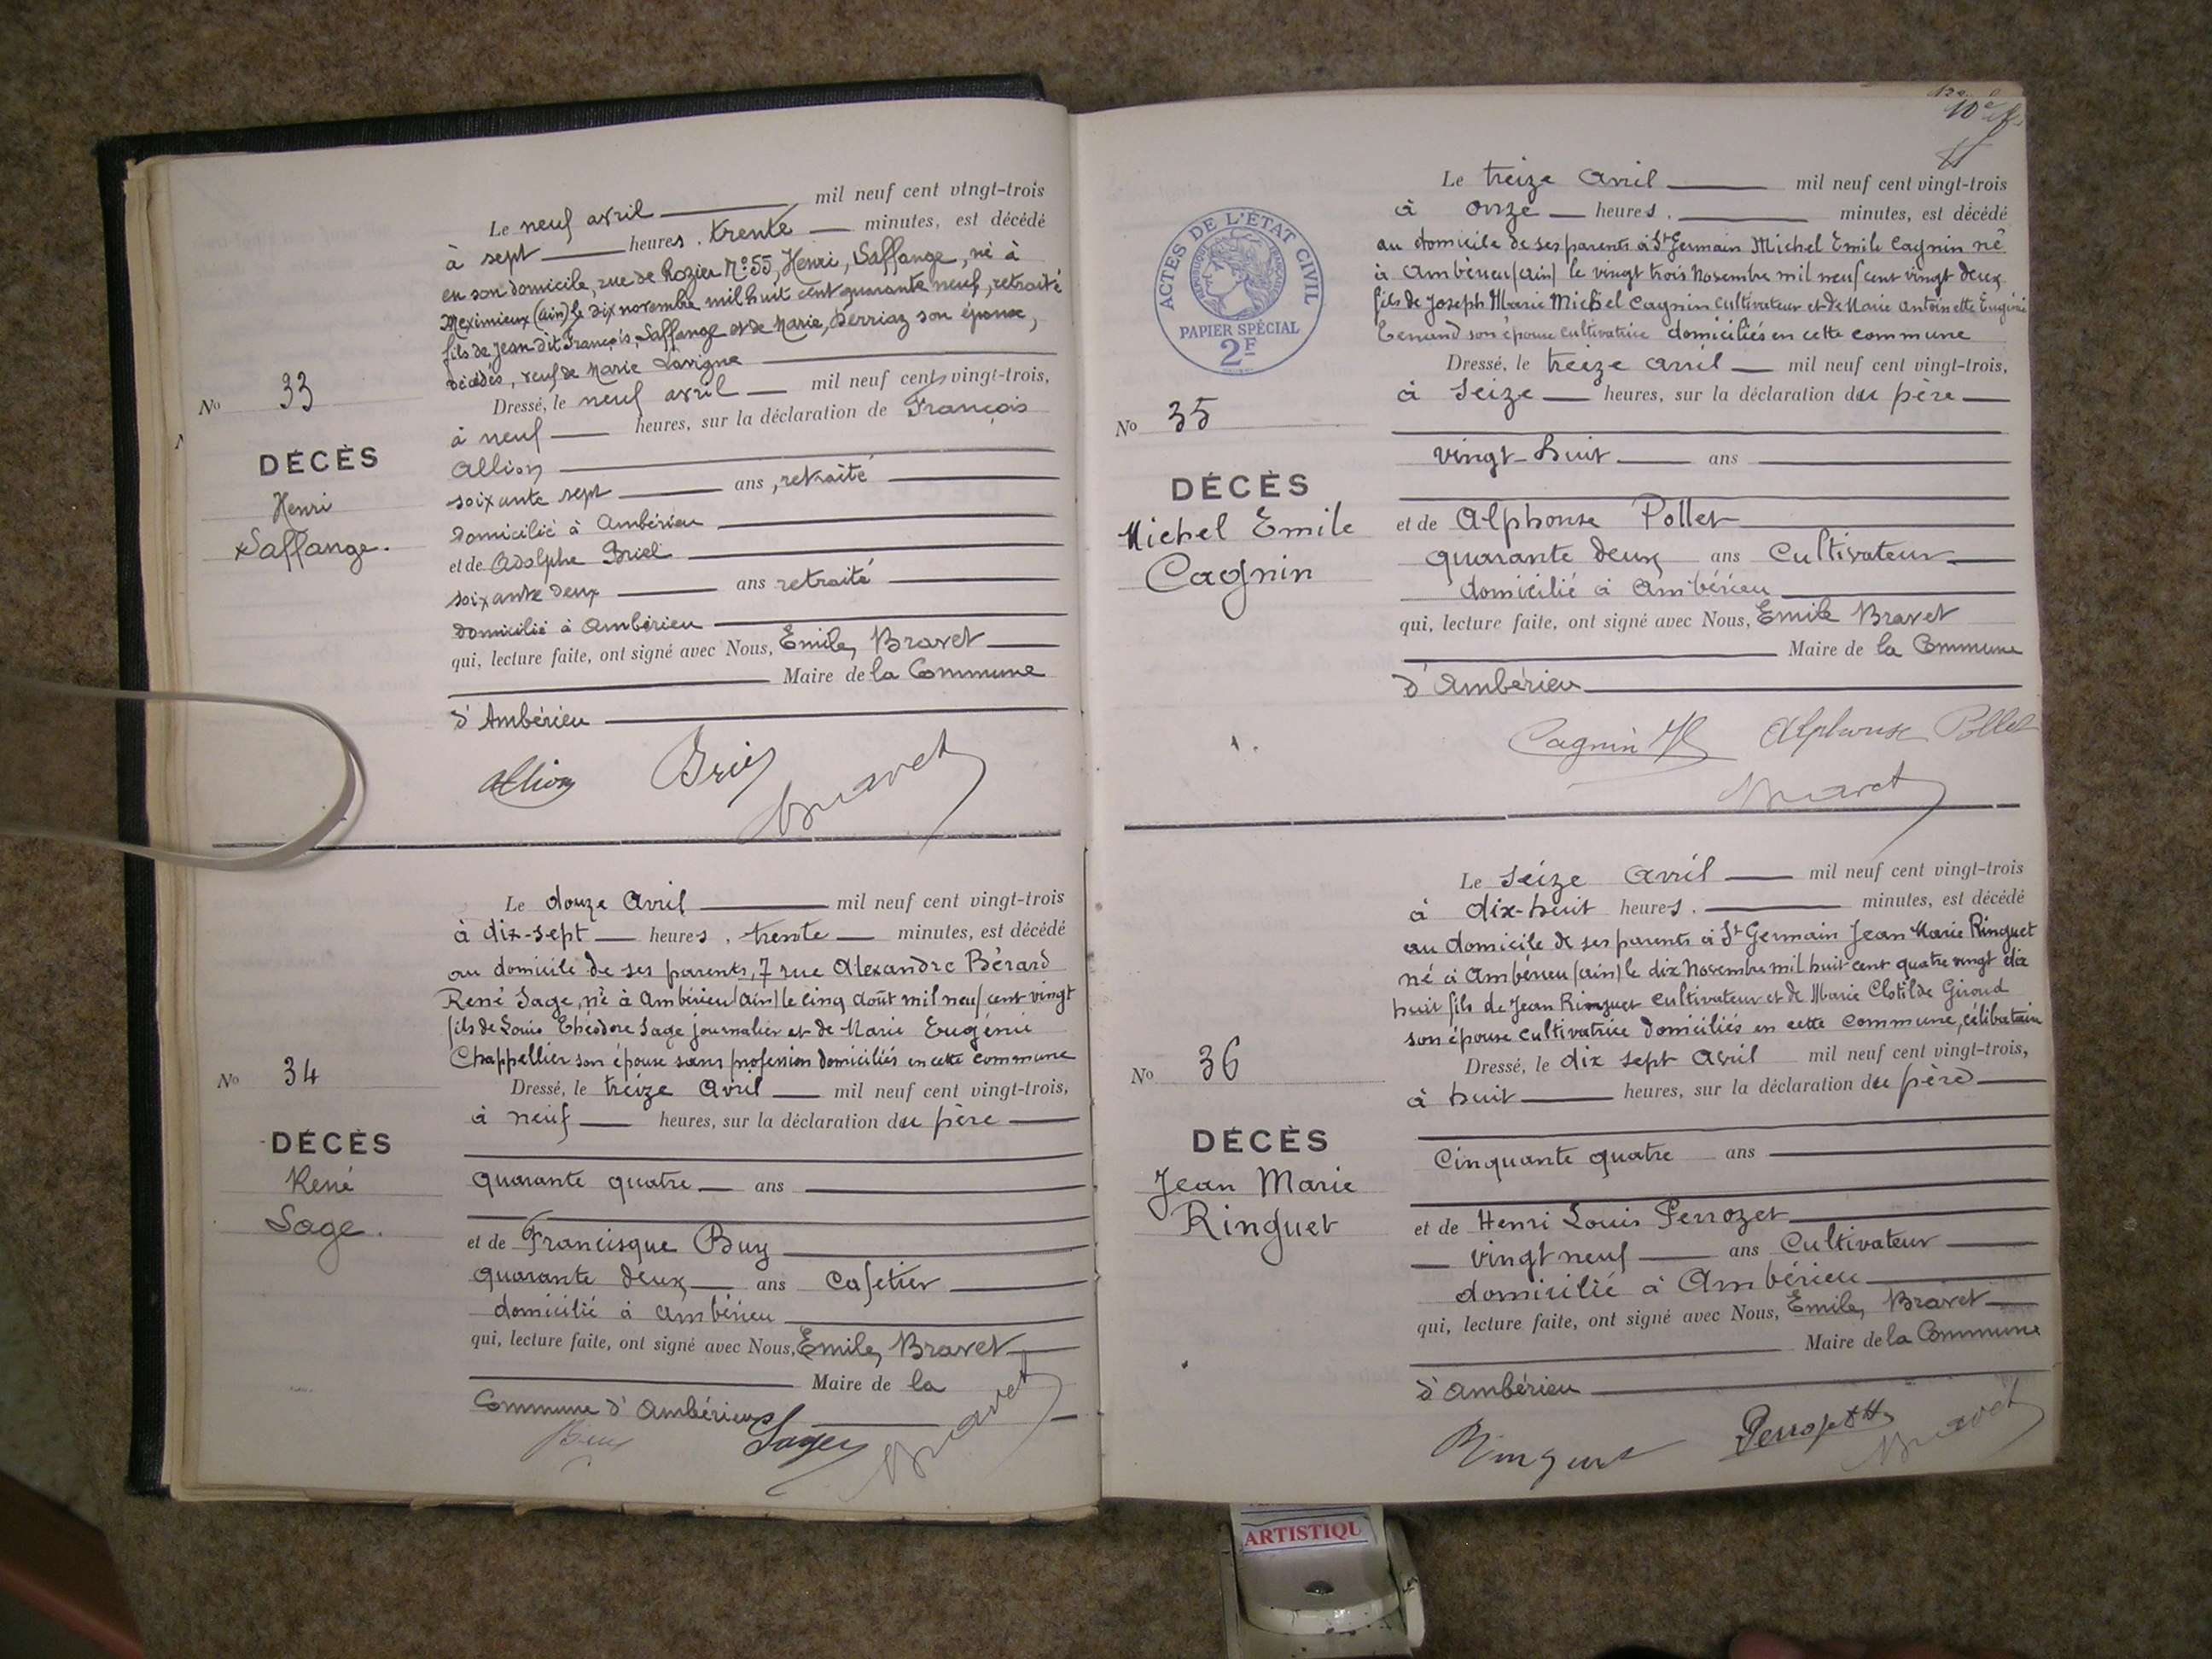 Le neuf avril mil neuf cent vingt-trois
à sept heures, trente minutes, est décédé
en son domicile, rue de Rozier No 55, Henri, Saffange, né à
Meximieux (ain) le dix novembre mil huit cent quarante neuf, retraité
fils de Jean dit François, Saffange et de Marie, Perriaz son épouse,
décédés, veuf de Marie Lavigne
No 33
Dressé, le neuf avril mil neuf cent vingt-trois,
à neuf heures, sur la déclaration de François
DÉCÈS
Allion
Henri
soixante sept ans, retraité
Saffange.
domicilié à Ambérieu
et de Adolphe Briel
soixante deux ans retraité
domicilié à Ambérieu
qui, lecture faite, ont signé avec Nous, Emile, Bravet
Maire de la Commune
d'Ambérieu
Allion Briel Bravet
Le douze Avril mil neuf cent vingt-trois
à dix-sept heures, trente minutes, est décédé
au domicile de ses parents, 7 rue Alexandre Bérard
René Sage, né à Ambérieu (Ain) le cinq août mil neuf cent vingt
fils de Louis Théodore Sage journalier et de Marie Eugénie
Chappellier son épouse sans profession domiciliés en cette commune
No 34
Dressé, le treize Avril mil neuf cent vingt-trois,
à neuf heures, sur la déclaration du père
DÉCÈS
René
quarante quatre ans
Sage.
et de Francisque Buy
quarante deux ans Cafetier
domicilié à Ambérieu
qui, lecture faite, ont signé avec Nous, Emile, Bravet
Maire de la
Commune d'Ambérieu
Buy Sage Bravet
10e
Le treize Avril mil neuf cent vingt-trois
à onze heures, minutes, est décédé
au domicile de ses parents à St Germain Michel Emile Cagnin né
à Ambérieu (ain) le vingt trois Novembre mil neuf cent vingt deux
fils de Joseph Marie Michel Cagnin cultivateur et de Marie Antoinette Eugénie
son épouse cultivatrice domiciliés en cette commune
ACTES DE L'ÉTAT CIVIL
RÉPUBLIQUE FRANÇAISE
PAPIER SPÉCIAL
2F
Dressé, le treize avril mil neuf cent vingt-trois,
à Seize heures, sur la déclaration du père
No 35
vingt-huit ans
DÉCÈS
Michel Emile
Cagnin
et de Alphonse Pollet
quarante deux ans Cultivateur
domicilié à Ambérieu
qui, lecture faite, ont signé avec Nous, Emile Bravet
Maire de la Commune
d'Ambérieu
Cagnin Alphonse Pollet
Bravet
Le Seize Avril mil neuf cent vingt-trois
à dix-huit heures, minutes, est décédé
au domicile de ses parents à St Germain Jean Marie Ringuet
né à Ambérieu (ain) le dix Novembre mil huit cent quatre vingt dix
huit fils de Jean Ringuet cultivateur et de Marie Clotilde Giroud
son épouse cultivatrice domiciliés en cette commune, célibataire
No 36
Dressé, le dix sept Avril mil neuf cent vingt-trois,
à huit heures, sur la déclaration du père
DÉCÈS
Cinquante quatre ans
Jean Marie
Ringuet
et de Henri Louis Perrozet
vingt neuf ans Cultivateur
domicilié à Ambérieu
qui, lecture faite, ont signé avec Nous, Emile, Bravet
Maire de la Commune
d'Ambérieu
Ringuet Bravet
ARTISTIQU